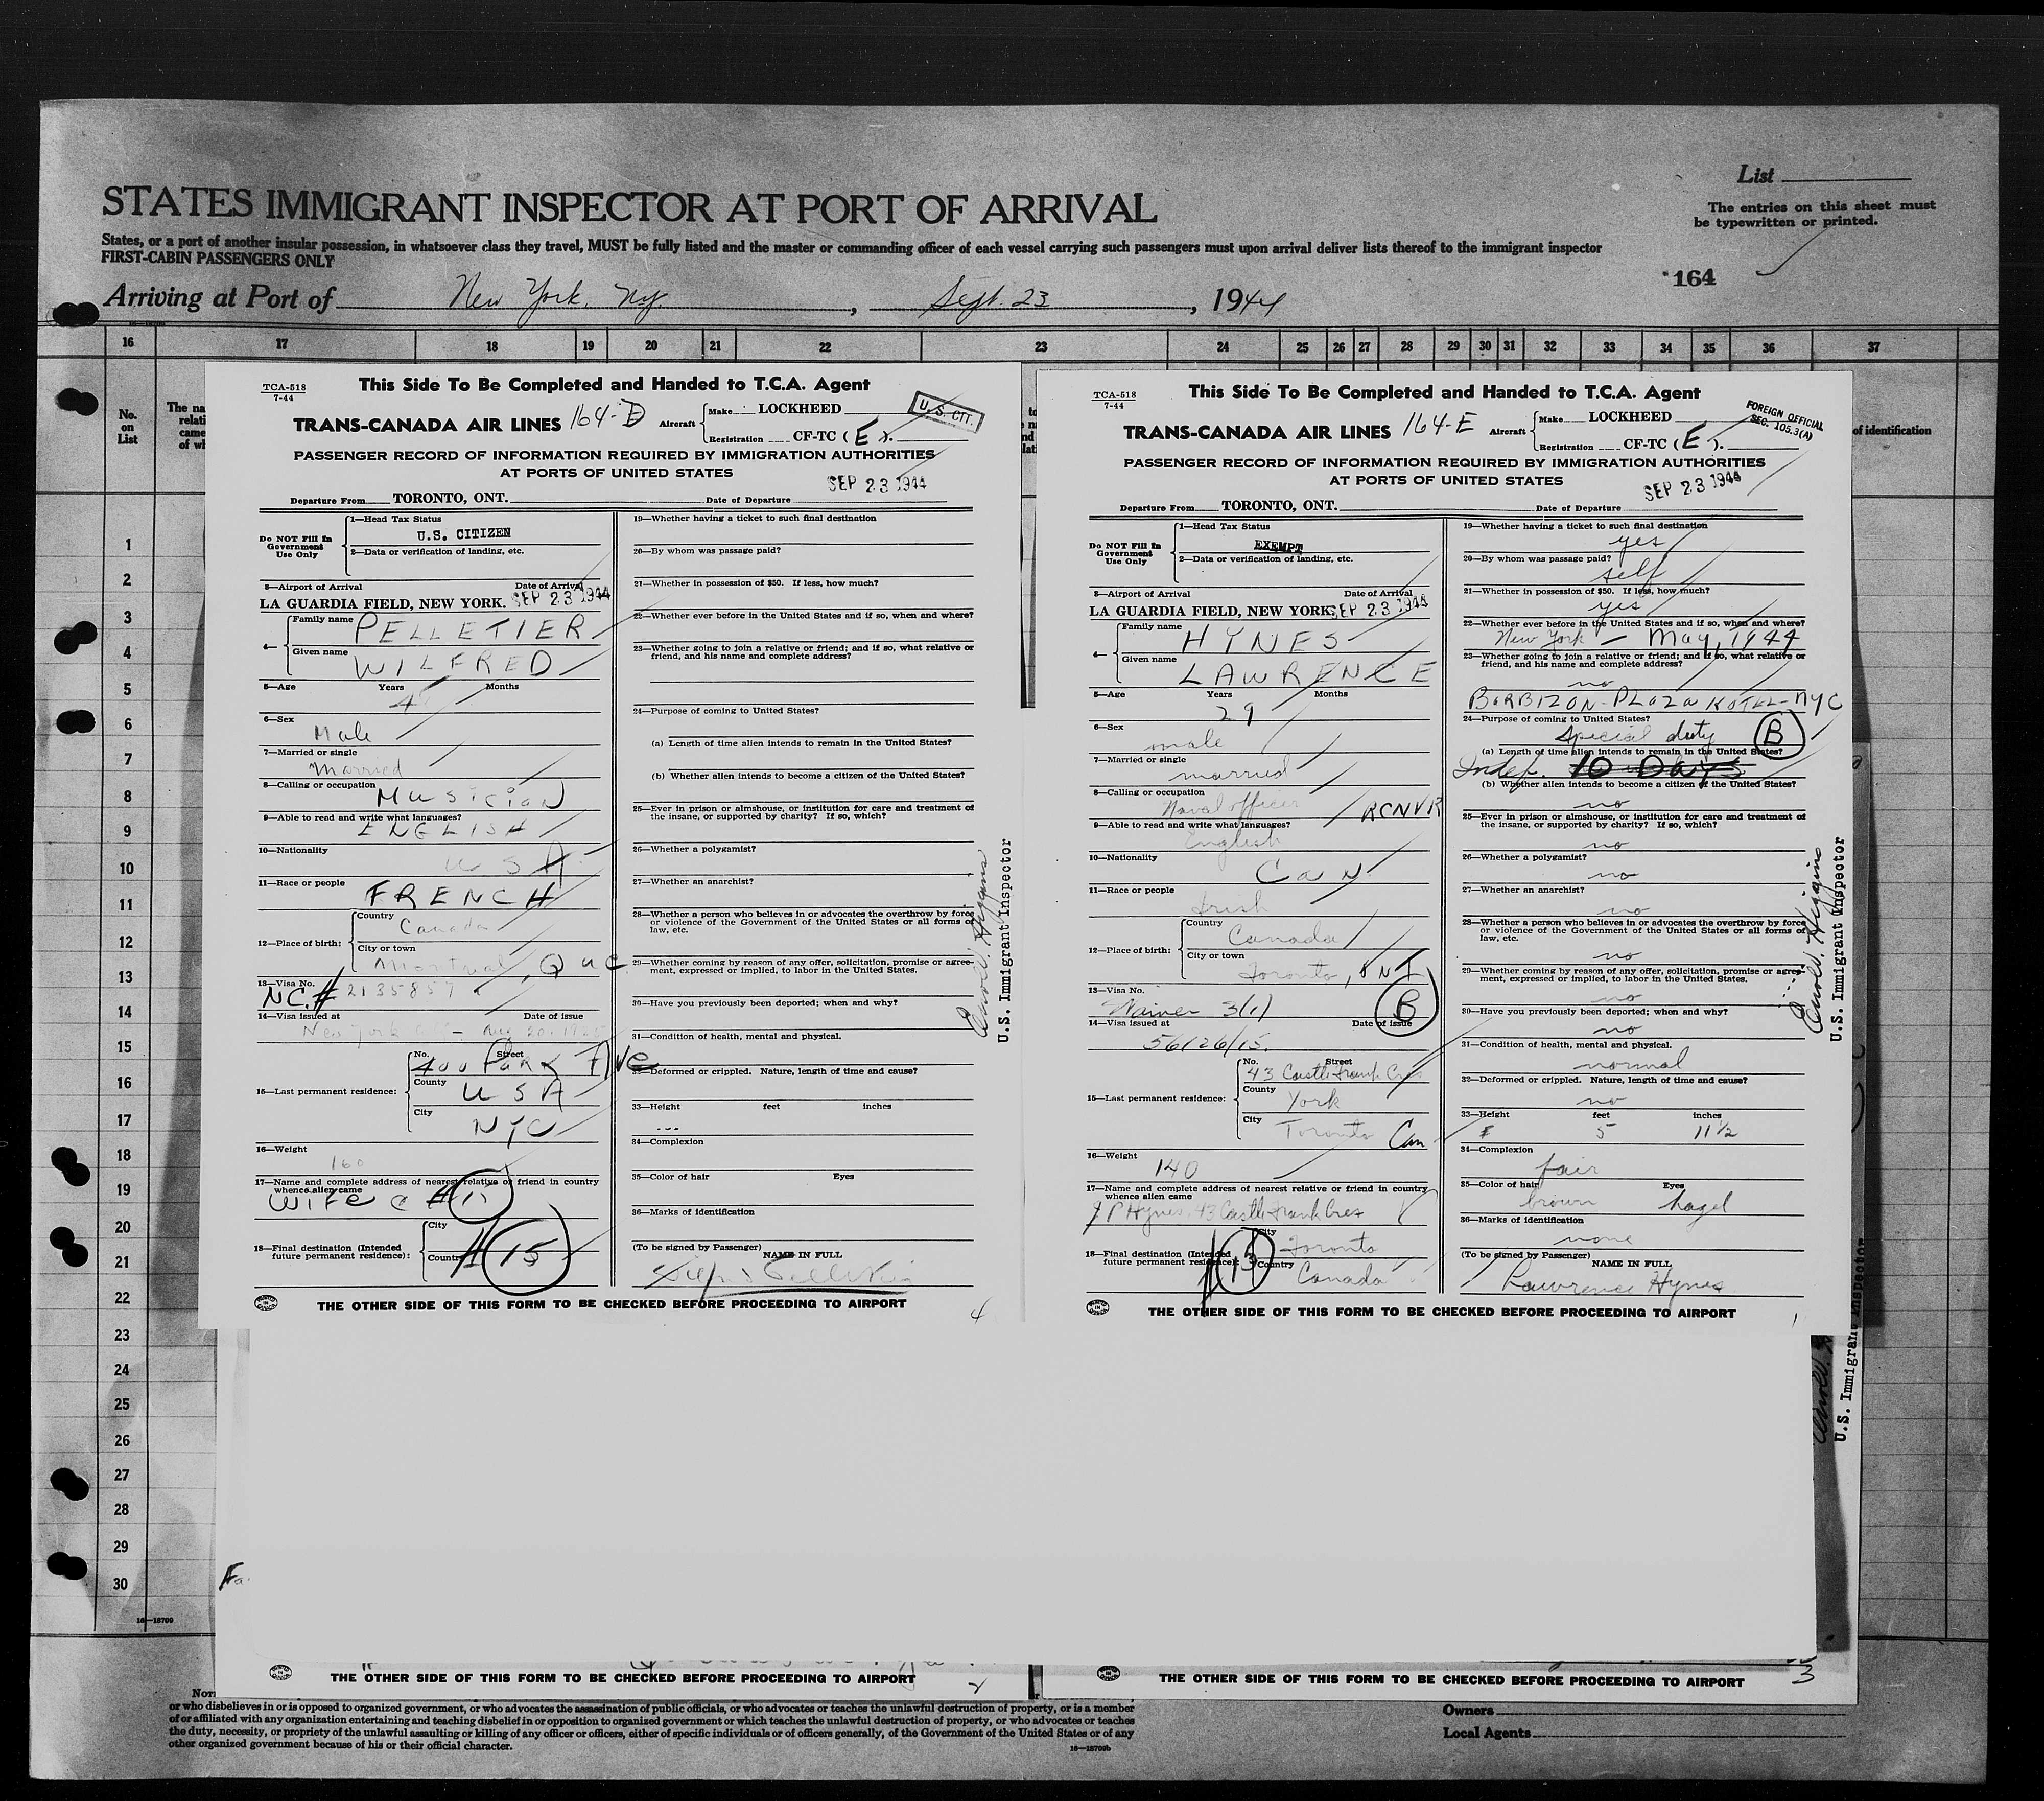 List
The entries on this sheet must
be typewritten or printed.
STATES IMMIGRANT INSPECTOR AT PORT OF ARRIVAL
States, or a port of another insular possession, in whatsoever class they travel, MUST be fully listed and the master or commanding officer of each vessel carrying such passengers must upon arrival deliver lists thereof to the immigrant inspector
FIRST-CABIN PASSENGERS ONLY
164
Arriving at Port of New York, NY. , Sept. 23 , 1944
16 17 18 19 20 21 22 23 24 25 26 27 28 29 30 31 32 33 34 35 36 37
No.
on
List
of identification
TCA-518
7-44
This Side To Be Completed and Handed to T.C.A. Agent
TRANS-CANADA AIR LINES 164-D
Aircraft
Make LOCKHEED
Registration CF-TC (E).
U.S. CIT.
PASSENGER RECORD OF INFORMATION REQUIRED BY IMMIGRATION AUTHORITIES
AT PORTS OF UNITED STATES
SEP 23 1944
Departure From TORONTO, ONT. Date of Departure
Do NOT Fill In
Government
Use Only
1—Head Tax Status
U.S. CITIZEN
2—Data or verification of landing, etc.
3—Airport of Arrival Date of Arrival
LA GUARDIA FIELD, NEW YORK. SEP 23 1944
4—
Family name PELLETIER
Given name WILFRED
5—Age Years Months
6—Sex
Male
7—Married or single
Married
8—Calling or occupation
Musician
9—Able to read and write what languages?
ENGLISH
10—Nationality
USA
11—Race or people
FRENCH
12—Place of birth:
Country
Canada
City or town
Montreal, Quc
13—Visa No.
NC.# 2135857
14—Visa issued at Date of issue
New York - Aug 20.
15—Last permanent residence:
No. Street
400 Park Ave
County
USA
City
NYC
16—Weight
160
17—Name and complete address of nearest relative or friend in country
whence alien came
Wife C # 15
18—Final destination (Intended
future permanent residence):
City
Country
# 15
19—Whether having a ticket to such final destination
20—By whom was passage paid?
21—Whether in possession of $50. If less, how much?
22—Whether ever before in the United States and if so, when and where?
23—Whether going to join a relative or friend; and if so, what relative or
friend, and his name and complete address?
24—Purpose of coming to United States?
(a) Length of time alien intends to remain in the United States?
(b) Whether alien intends to become a citizen of the United States?
25—Ever in prison or almshouse, or institution for care and treatment of
the insane, or supported by charity? If so, which?
26—Whether a polygamist?
27—Whether an anarchist?
28—Whether a person who believes in or advocates the overthrow by force
or violence of the Government of the United States or all forms of
law, etc.
29—Whether coming by reason of any offer, solicitation, promise or agree-
ment, expressed or implied, to labor in the United States.
30—Have you previously been deported; when and why?
31—Condition of health, mental and physical.
32—Deformed or crippled. Nature, length of time and cause?
33—Height feet inches
34—Complexion
35—Color of hair Eyes
36—Marks of identification
(To be signed by Passenger)
NAME IN FULL
Wilfred Pelletier
THE OTHER SIDE OF THIS FORM TO BE CHECKED BEFORE PROCEEDING TO AIRPORT
4
Higgins
U.S. Immigrant Inspector
TCA-518
7-44
This Side To Be Completed and Handed to T.C.A. Agent
TRANS-CANADA AIR LINES 164-E
Aircraft
Make LOCKHEED
Registration CF-TC (E).
FOREIGN OFFICIAL
SEC. 105.3(A)
PASSENGER RECORD OF INFORMATION REQUIRED BY IMMIGRATION AUTHORITIES
AT PORTS OF UNITED STATES
SEP 23 1944
Departure From TORONTO, ONT. Date of Departure
Do NOT Fill In
Government
Use Only
1—Head Tax Status
EXEMPT
2—Data or verification of landing, etc.
3—Airport of Arrival Date of Arrival
LA GUARDIA FIELD, NEW YORK. SEP 23 1944
4—
Family name HYNES
Given name LAWRENCE
5—Age Years Months
29
6—Sex
male
7—Married or single
married
8—Calling or occupation
Naval officer RCNVR
9—Able to read and write what languages?
English
10—Nationality
CaN
11—Race or people
Irish
12—Place of birth:
Country
Canada
City or town
Toronto, ONT
13—Visa No.
Waiver 3(1) B
14—Visa issued at Date of issue
56126/15.
15—Last permanent residence:
No. Street
43 Castle Frank Cres
County
York
City
Toronto Can
16—Weight
140
17—Name and complete address of nearest relative or friend in country
whence alien came
J P Hynes, 43 Castle Frank Cres
18—Final destination (Intended
future permanent residence):
City
Toronto
Country
Canada
# 15
19—Whether having a ticket to such final destination
yes
20—By whom was passage paid?
self
21—Whether in possession of $50. If less, how much?
yes
22—Whether ever before in the United States and if so, when and where?
New York — May, 1944
23—Whether going to join a relative or friend; and if so, what relative or
friend, and his name and complete address?
no
BARBIZON-PLAZA HOTEL-NYC
24—Purpose of coming to United States?
Special duty B
(a) Length of time alien intends to remain in the United States?
Indef. 10 Days
(b) Whether alien intends to become a citizen of the United States?
no
25—Ever in prison or almshouse, or institution for care and treatment of
the insane, or supported by charity? If so, which?
no
26—Whether a polygamist?
no
27—Whether an anarchist?
no
28—Whether a person who believes in or advocates the overthrow by force
or violence of the Government of the United States or all forms of
law, etc.
no
29—Whether coming by reason of any offer, solicitation, promise or agree-
ment, expressed or implied, to labor in the United States.
no
30—Have you previously been deported; when and why?
no
31—Condition of health, mental and physical.
normal
32—Deformed or crippled. Nature, length of time and cause?
no
33—Height feet inches
5 11 1/2
34—Complexion
fair
35—Color of hair Eyes
brown hazel
36—Marks of identification
none
(To be signed by Passenger)
NAME IN FULL
Lawrence Hynes
THE OTHER SIDE OF THIS FORM TO BE CHECKED BEFORE PROCEEDING TO AIRPORT
1
Higgins
U.S. Immigrant Inspector
U.S. Immigrant Inspector
1
2
3
4
5
6
7
8
9
10
11
12
13
14
15
16
17
18
19
20
21
22
23
24
25
26
27
28
29
30
16—18709
THE OTHER SIDE OF THIS FORM TO BE CHECKED BEFORE PROCEEDING TO AIRPORT
2
THE OTHER SIDE OF THIS FORM TO BE CHECKED BEFORE PROCEEDING TO AIRPORT
3
or who disbelieves in or is opposed to organized government, or who advocates the assassination of public officials, or who advocates or teaches the unlawful destruction of property, or is a member
of or affiliated with any organization entertaining and teaching disbelief in or opposition to organized government or which teaches the unlawful destruction of property, or who advocates or teaches
the duty, necessity, or propriety of the unlawful assaulting or killing of any officer or officers, either of specific individuals or of officers generally, of the Government of the United States or of any
other organized government because of his or their official character.
16—18709b
Owners
Local Agents